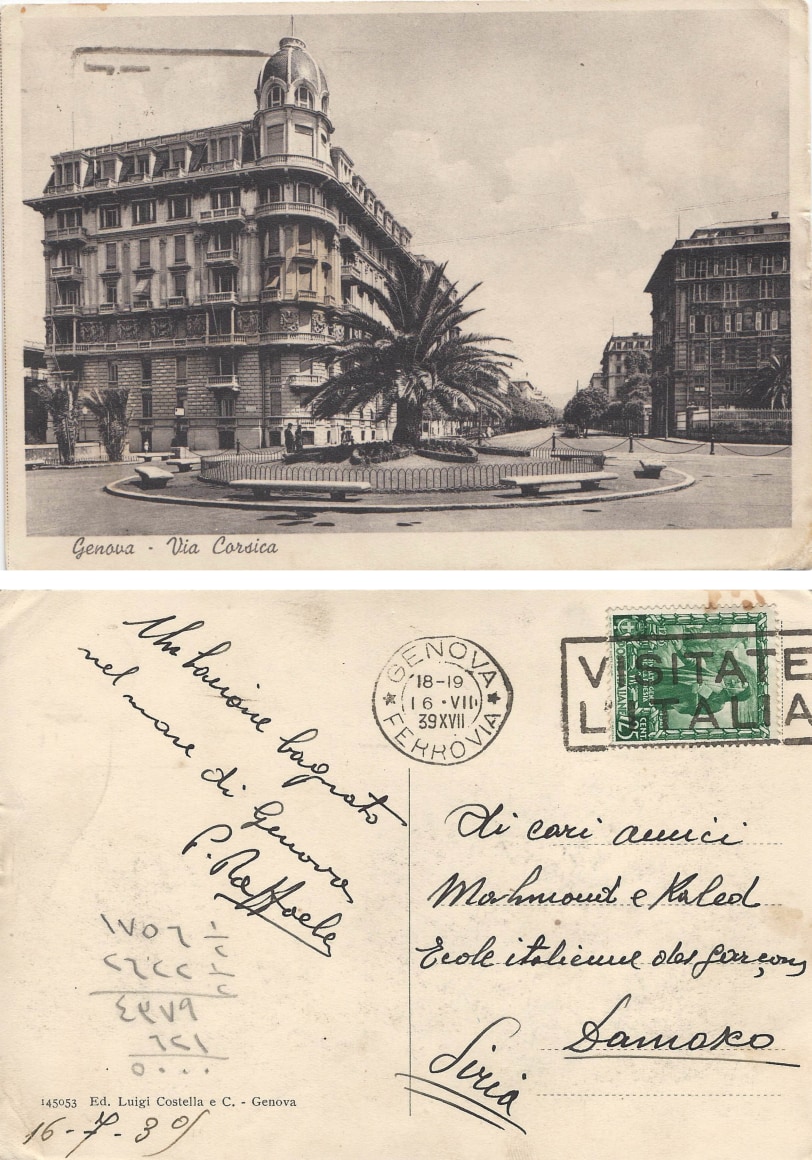 Genova - Via Corsica
Un bacione bagnato
nel mare di Genova
P. Raffaele
GENOVA
18-19
16·VII
39XVII
FERROVIA
VISITATE
L'ITALIA
CENT 25
Ai cari amici
Mahmoud e Kaled
Ecole italienne des garçons
Damasko
Siria
١٧٥٦ ١/٢
٢٦٢٢ ١/٢
٤٣٧٩
٦٢١
٥٠٠٠
145053 Ed. Luigi Costella e C. - Genova
16-7-39